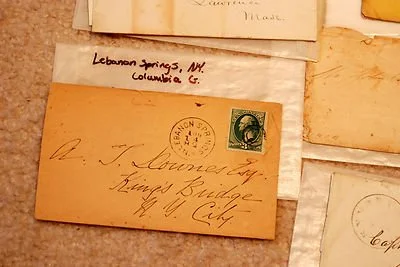 Lawrence
Mass.
Lebanon Springs, NY.
Columbia G.
LEBANON SPRINGS
N.Y.
A. T. Downes Esq.
King's Bridge
N. Y. City